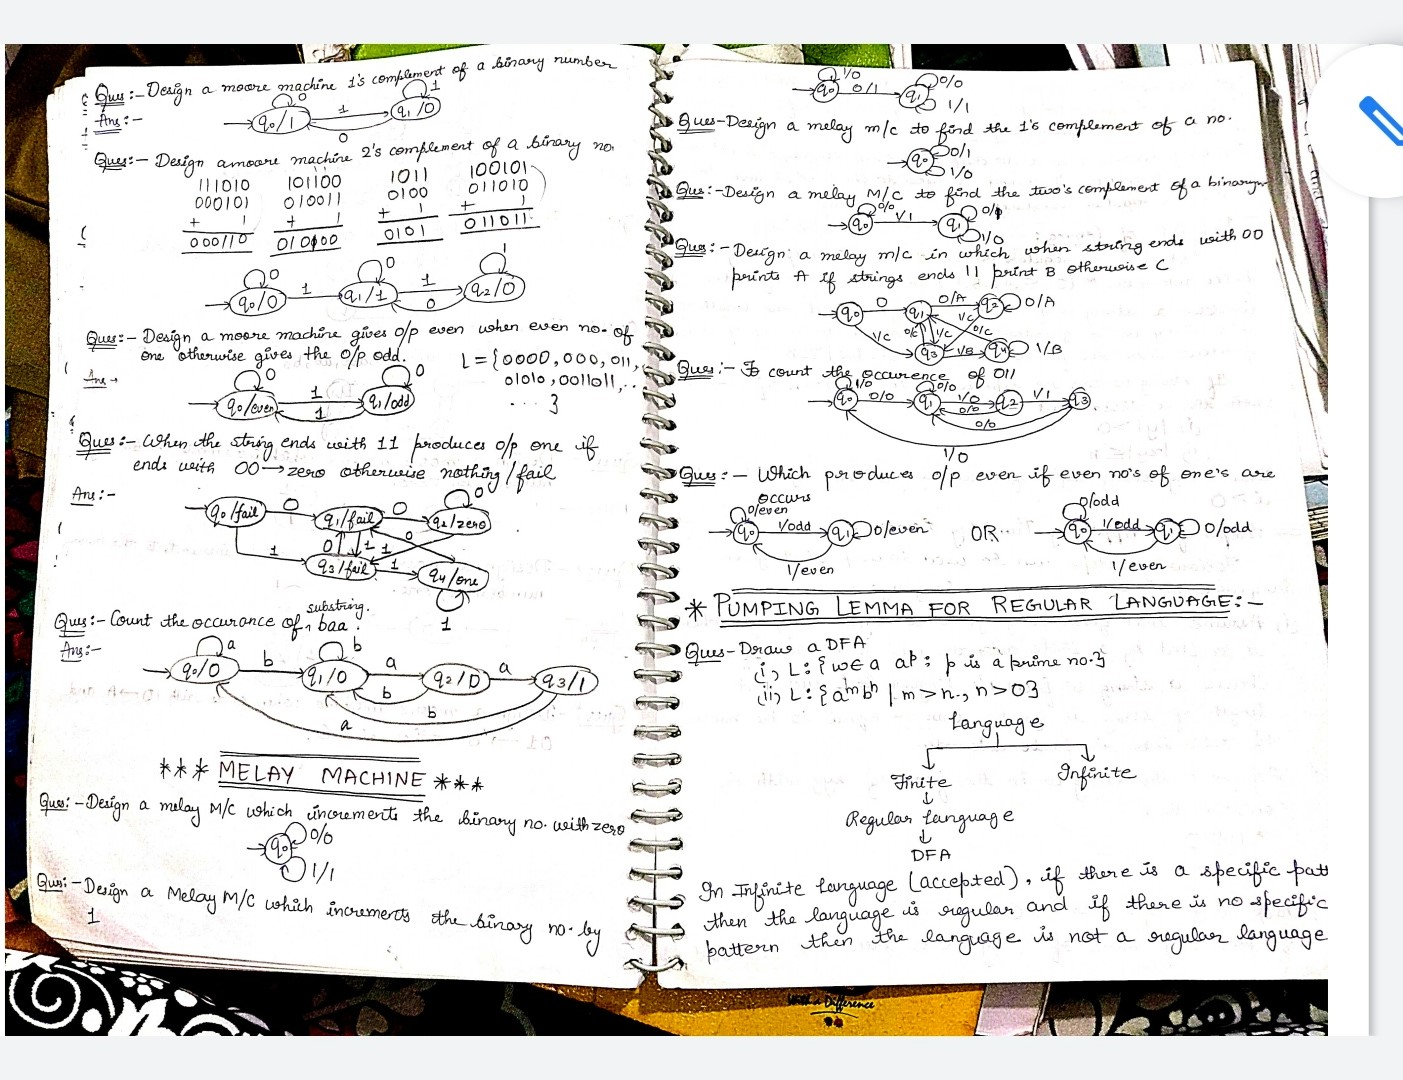 Ques :- Design a moore machine 1's complement of a binary number
Ans :-
0
1
q0/1
1
q1/0
0
Ques :- Design a moore machine 2's complement of a binary no.
111010 101100 1011 100101
000101 010011 0100 011010
+ 1 + 1 + 1 + 1
000110 010100 0101 011011
0 0 1
q0/0 1 q1/1 1 q2/0
0
Ques :- Design a moore machine gives o/p even when even no. of
one otherwise gives the o/p odd. L = {0000, 000, 011,
Ans → 01010, 0011011, ..
0 0
q0/even 1 q1/odd ... }
1
Ques :- When the string ends with 11 produces o/p one if
ends with 00 → zero otherwise nothing / fail
Ans :-
0
q0/fail 0 q1/fail 0 q2/zero
0 1 1 0
1 q3/fail 1 q4/one
1
substring.
Ques :- Count the occurance of baa .
Ans :-
a b
q0/0 b q1/0 a q2/0 a q3/1
b
b
a
*** MELAY MACHINE ***
Ques :- Design a melay M/C which increments the binary no. with zero
q0 0/0
1/1
Ques :- Design a Melay M/C which increments the binary no. by
1
1/0 0/0
q0 0/1 q1
1/1
Ques - Design a melay m/c to find the 1's complement of a no.
q0 0/1
1/0
Ques :- Design a melay M/C to find the two's complement of a binary
0/0 1/1 0/1
q0 q1
1/0
Ques :- Design a melay m/c in which when string ends with 00
prints A if strings ends 11 print B otherwise C
q0 0 q1 0/A q2 0/A
1/C 0/C 1/C 1/C 0/C
q3 1/B q4 1/B
Ques :- To count the occurence of 011
1/0 0/0
q0 0/0 q1 1/0 q2 1/1 q3
0/0
0/0
1/0
Ques :- Which produces o/p even if even no's of one's are
occurs
0/even 0/odd
q0 1/odd q1 0/even OR q0 1/odd q1 0/odd
1/even 1/even
* PUMPING LEMMA FOR REGULAR LANGUAGE :-
Ques - Draw a DFA
(i) L : { w ∈ a aᵖ ; p is a prime no.}
(ii) L : { aᵐbⁿ | m > n., n > 0}
Language
Finite Infinite
↓
Regular Language
↓
DFA
In Infinite language (accepted), if there is a specific patt
then the language is regular and if there is no specific
pattern then the language is not a regular language
With a Difference